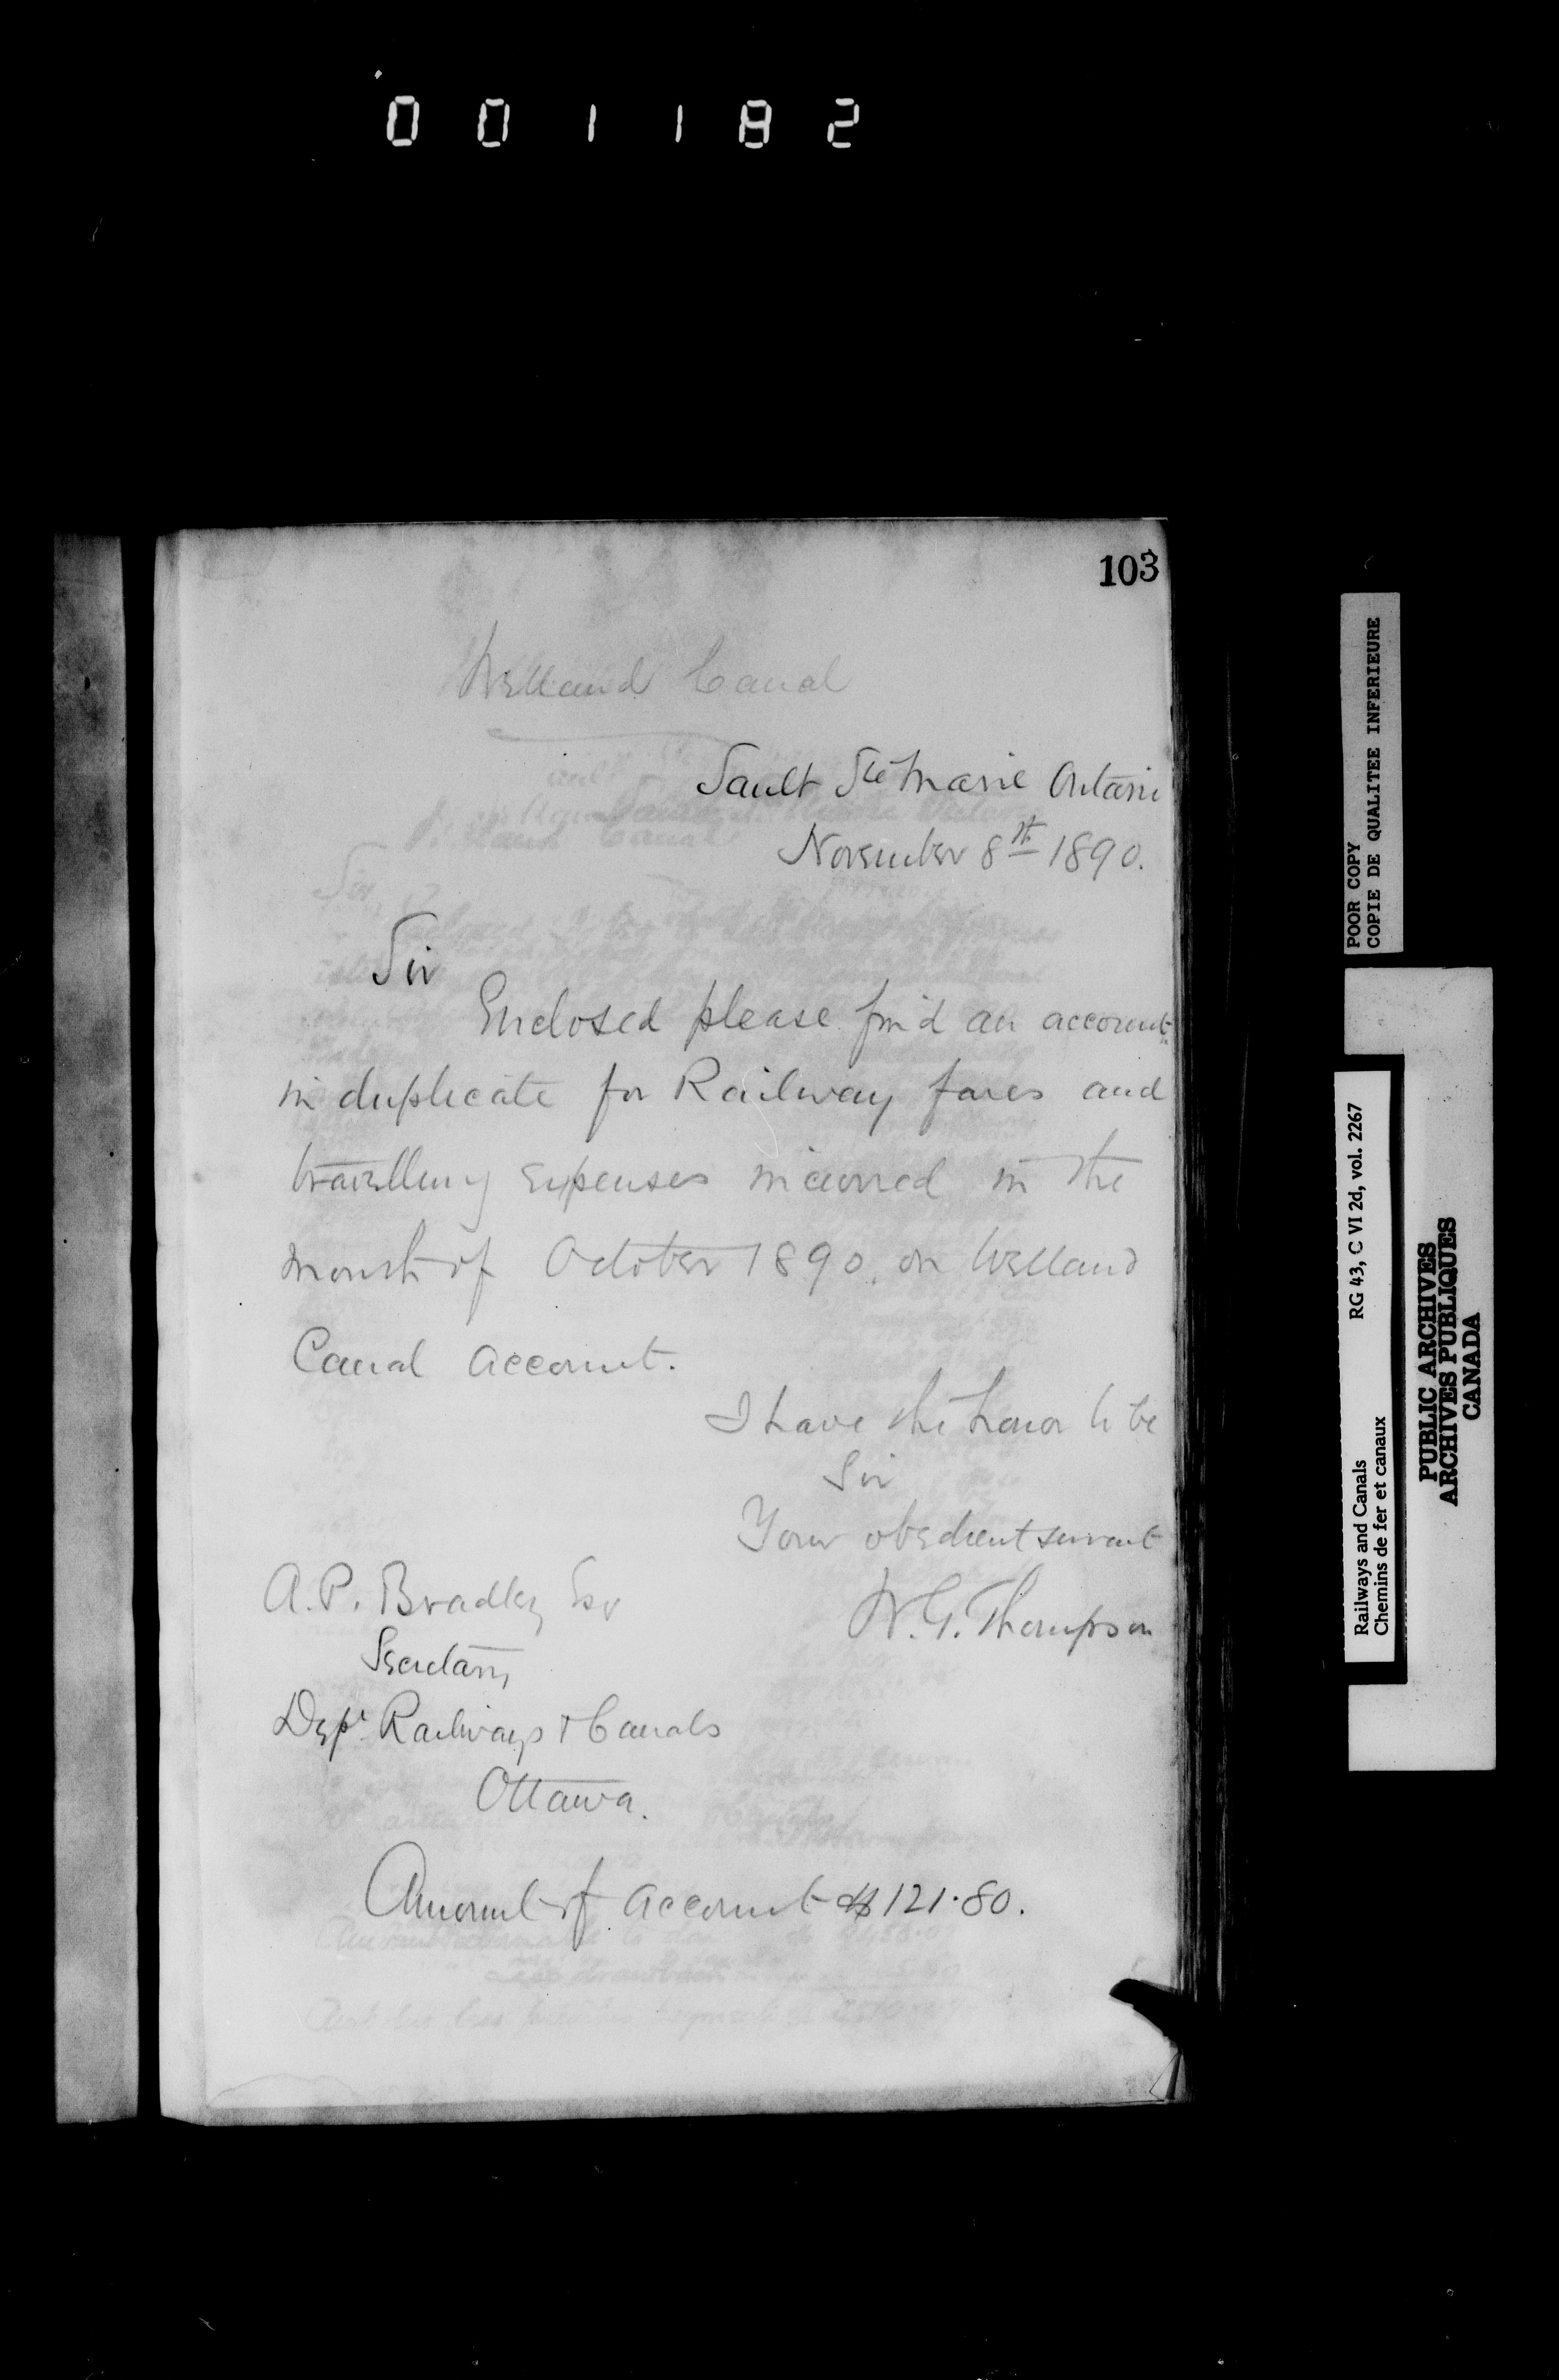 001182
103
Welland Canal
Sault Ste Marie Ontario
November 8th 1890.
Sir
Enclosed please find an account
in duplicate for Railway fares and
travelling expenses incurred in the
month of October 1890. on Welland
Canal Account.
I have the honor to be
Sir
Your obedient servant
W.G. Thompson
A.P. Bradley Esq
Secretary
Dept Railways & Canals
Ottawa.
Amount of account $121.80.
POOR COPY
COPIE DE QUALITEE INFERIEURE
Railways and Canals RG 43, C VI 2d, vol. 2267
Chemins de fer et canaux
PUBLIC ARCHIVES
ARCHIVES PUBLIQUES
CANADA